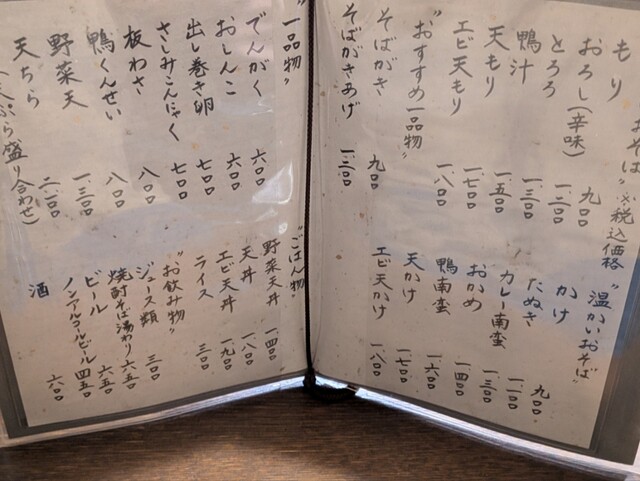 "おそば" ※税込価格
もり 九〇〇
おろし(辛味) 一、三〇〇
とろろ 一、三〇〇
鴨汁 一、五〇〇
天もり 一、七〇〇
エビ天もり 一、八〇〇
"おすすめ一品物"
そばがき 九〇〇
そばがきあげ 一、三〇〇
"温かいおそば"
かけ 九〇〇
たぬき
カレー南蛮 一、三〇〇
おかめ 一、四〇〇
鴨南蛮 一、六〇〇
天かけ 一、七〇〇
エビ天かけ 一、八〇〇
"一品物"
でんがく 六〇〇
おしんこ 六〇〇
出し巻き卵 七〇〇
さしみこんにゃく 七〇〇
板わさ 八〇〇
鴨くんせい 八〇〇
野菜天 一、三〇〇
天ちら
(天ぷら盛り合わせ) 二、一〇〇
"ごはん物"
野菜天丼 一、四〇〇
天丼 一、八〇〇
エビ天丼 一、九〇〇
ライス 三〇〇
"お飲み物"
ジュース類 三〇〇
焼酎そば湯わり 六五〇
ビール 六五〇
ノンアルコールビール 四五〇
酒 六〇〇